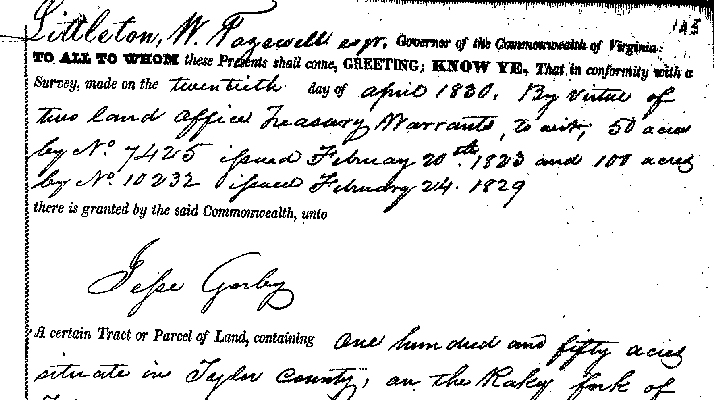 145
Littleton, W. Tazewell esqr. Governor of the Commonwealth of Virginia:
TO ALL TO WHOM these Presents shall come, GREETING; KNOW YE, That in conformity with a
Survey, made on the twentieth day of april 1830. By virtue of
two land office Treasury Warrants, to wit, 50 acres
by No. 7425 issued Februay 20th. 1823 and 100 acres
by No. 10232 issued February 24. 1829
there is granted by the said Commonwealth, unto
Jesse Gorby
A certain Tract or Parcel of Land, containing One hundred and fifty acres
situate in Tyler County, on the Raky fork of